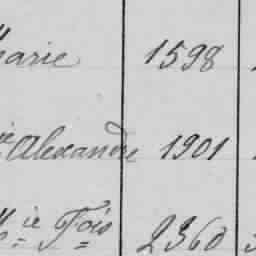 Marie 1598
ie Alexandre 1901
Mie Fois 2360